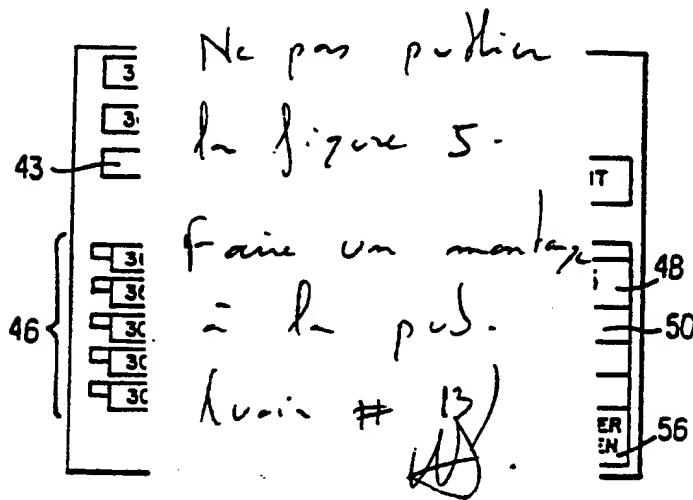 Ne pas publier
la figure 5.
Faire un montage
à la pub.
# 13
3
3
43
IT
46
30
30
30
30
30
48
50
ER
EN
56